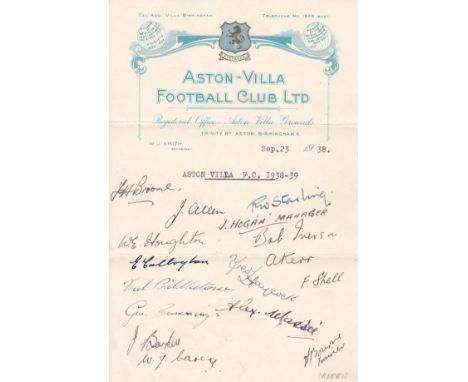 TEL. ADD: VILLA BIRMINGHAM.
TELEPHONE NO
ASTON-VILLA
FOOTBALL CLUB LTD
Registered Office - Aston Villa Grounds
TRINITY RD ASTON, BIRMINGHAM 6
W. J. SMITH,
SECRETARY
Sep.23 1938.
ASTON VILLA F.C. 1938-39
F H Broome.
J. Allen
R W Starling
J. HOGAN MANAGER
W E Houghton
Bob Iverson
E Callaghan
Fred Haycock
A Kerr
F. Shell
Geo. Cummings
Alex. Massie
J Barker
W. J. Carey
Trainer